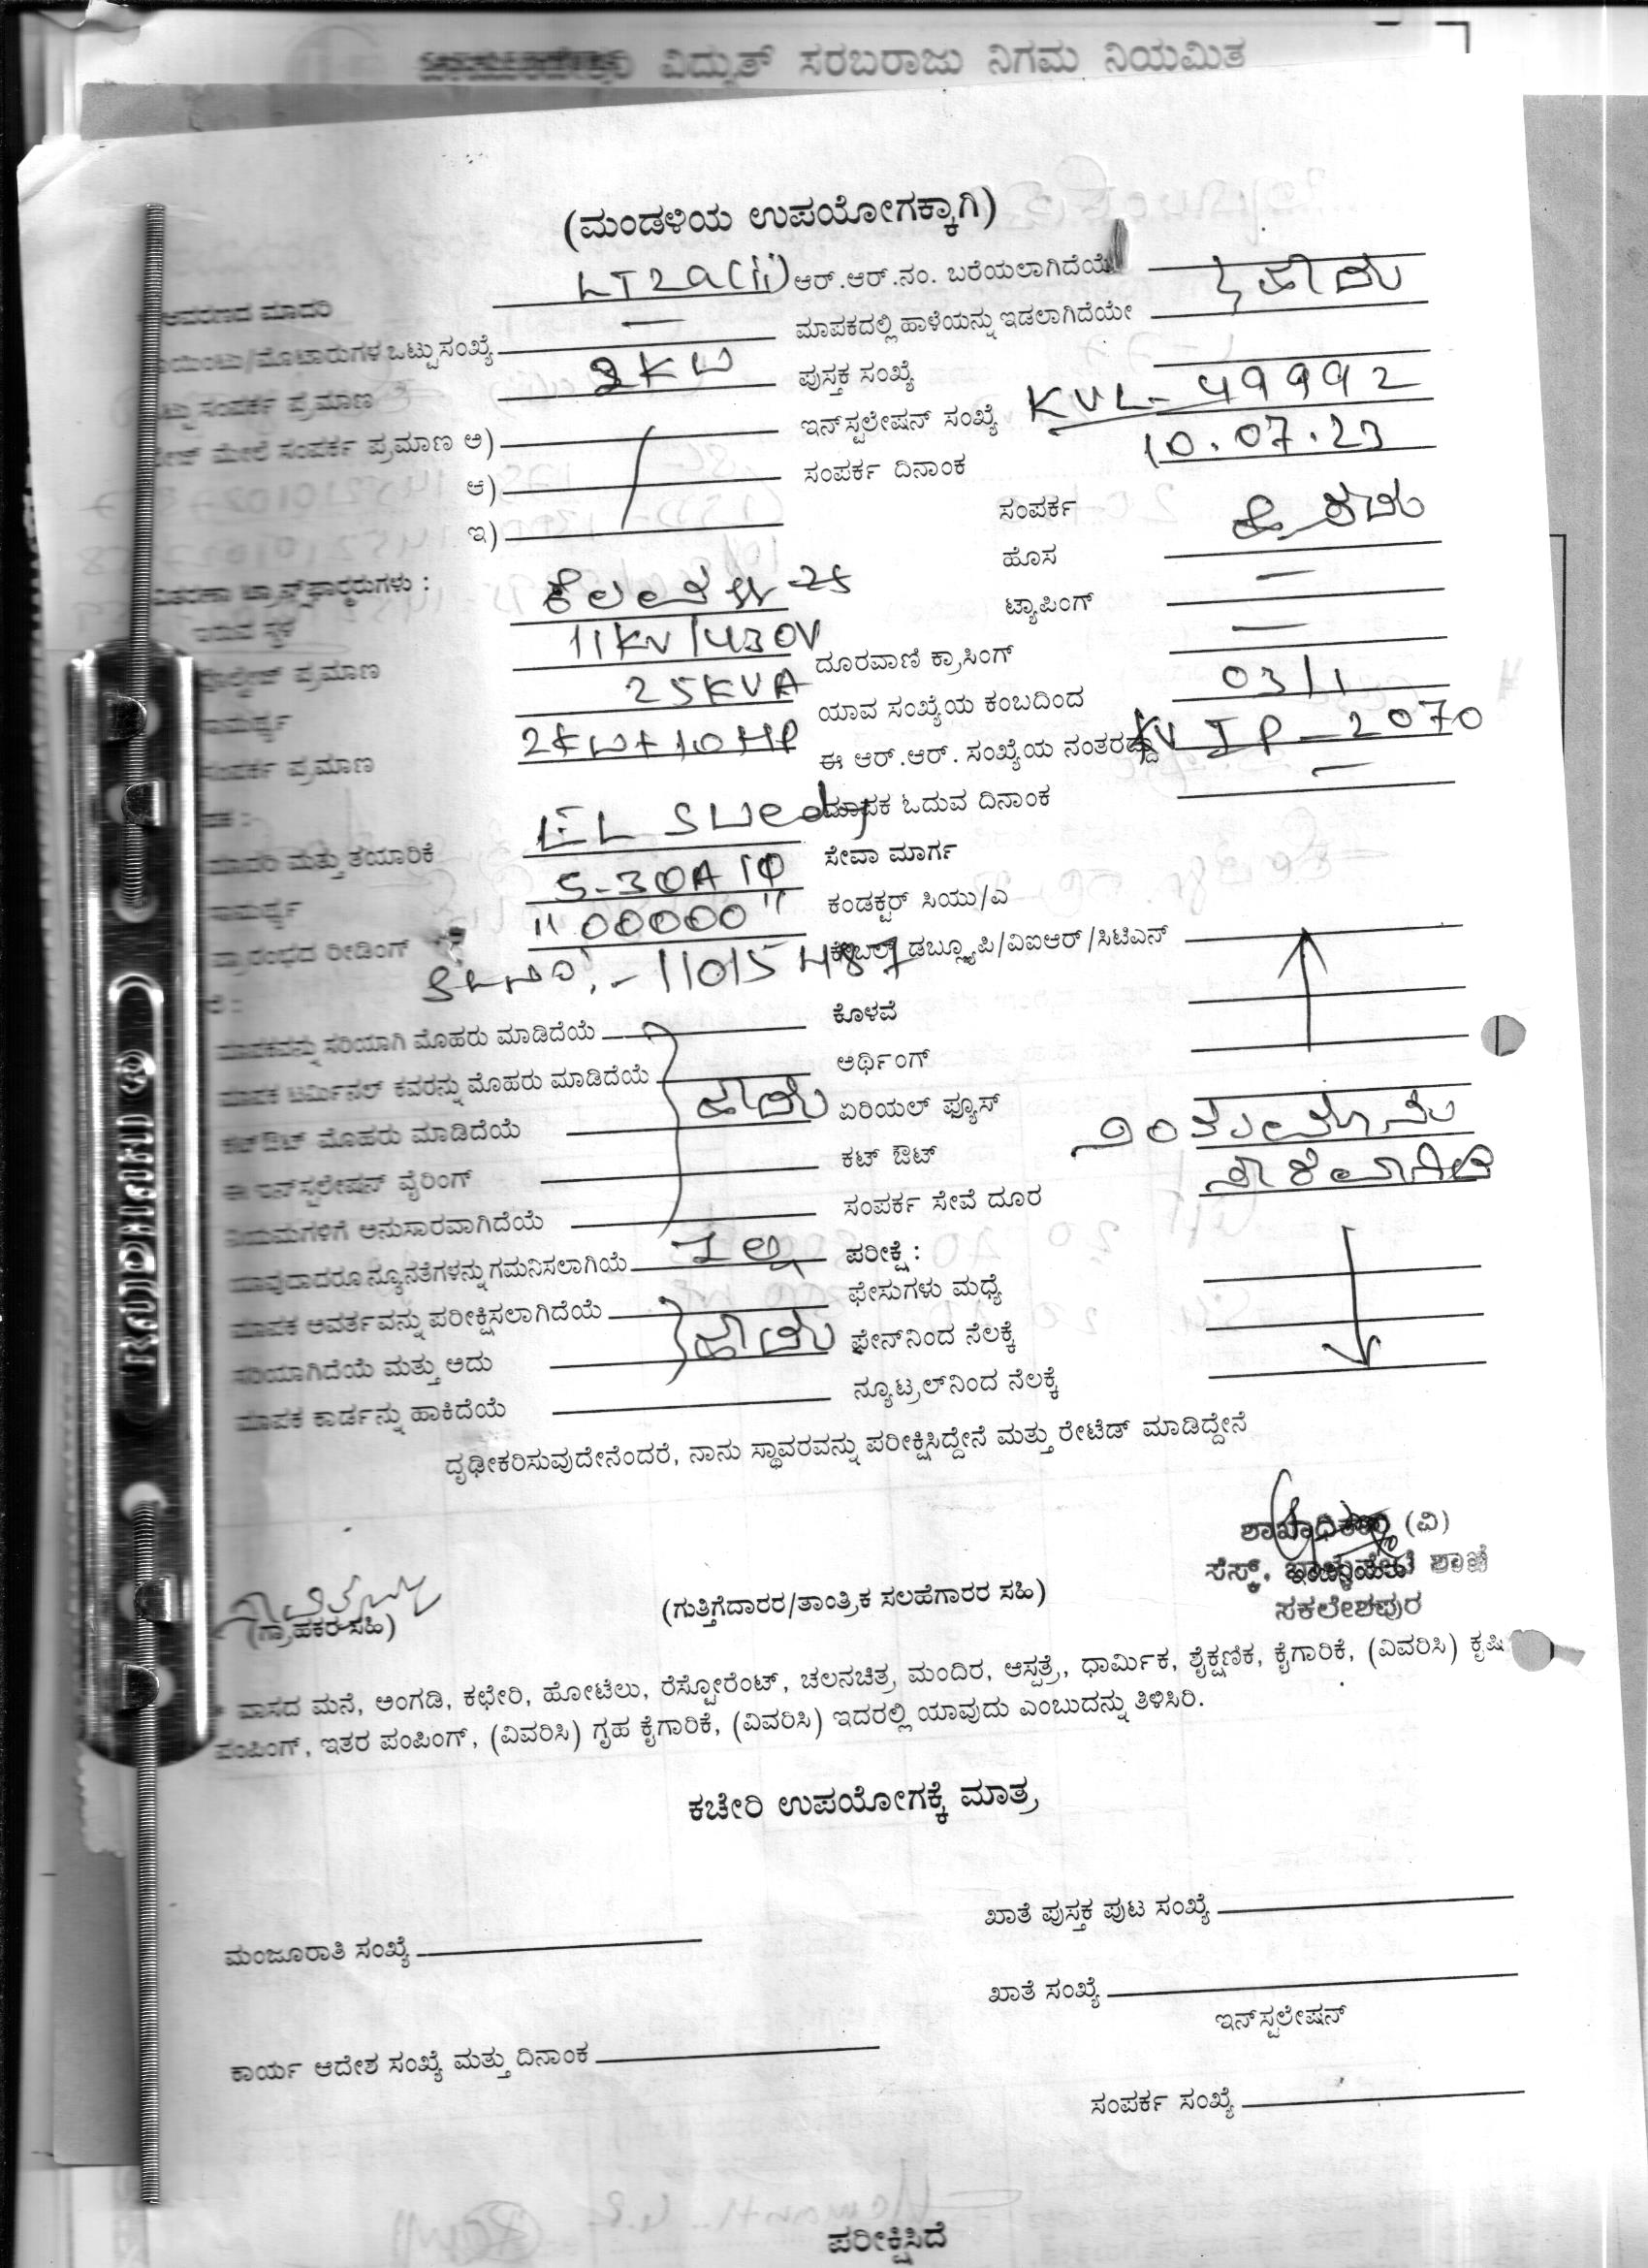 ವಿದ್ಯುತ್ ಸರಬರಾಜು ನಿಗಮ ನಿಯಮಿತ
(ಮಂಡಳಿಯ ಉಪಯೋಗಕ್ಕಾಗಿ)
ಆವರಣದ ಮಾದರಿ LT2a(ii) ಆರ್.ಆರ್.ನಂ. ಬರೆಯಲಾಗಿದೆಯೆ ಹೌದು
/ಮೊಟಾರುಗಳ ಒಟ್ಟು ಸಂಖ್ಯೆ — ಮಾಪಕದಲ್ಲಿ ಹಾಳೆಯನ್ನು ಇಡಲಾಗಿದೆಯೇ
ಸಂಪರ್ಕ ಪ್ರಮಾಣ 2KW ಪುಸ್ತಕ ಸಂಖ್ಯೆ
ಮೇಲೆ ಸಂಪರ್ಕ ಪ್ರಮಾಣ ಅ) ಇನ್‌ಸ್ಟಲೇಷನ್ ಸಂಖ್ಯೆ KVL-49992
ಆ) ಸಂಪರ್ಕ ದಿನಾಂಕ 10.07.23
ಇ) ಸಂಪರ್ಕ
ಹೊಸ
ವಿತರಣಾ ಟ್ರಾನ್ಸ್‌ಫಾರ್ಮರುಗಳು :
ಇರುವ ಸ್ಥಳ ಟ್ಯಾಪಿಂಗ್ —
ಪ್ರಮಾಣ 11KV/430V ದೂರವಾಣಿ ಕ್ರಾಸಿಂಗ್ —
ಸಾಮರ್ಥ್ಯ 25KVA ಯಾವ ಸಂಖ್ಯೆಯ ಕಂಬದಿಂದ 03/1
ಸಂಪರ್ಕ ಪ್ರಮಾಣ 2KW+10HP ಈ ಆರ್.ಆರ್. ಸಂಖ್ಯೆಯ ನಂತರದ್ದು KVIP-2070
ಮಾಪಕ ಓದುವ ದಿನಾಂಕ —
ಮಾದರಿ ಮತ್ತು ತಯಾರಿಕೆ EL Swedy ಸೇವಾ ಮಾರ್ಗ
ಸಾಮರ್ಥ್ಯ 5-30A 1Φ ಕಂಡಕ್ಟರ್ ಸಿಯು/ಎ
ಪ್ರಾರಂಭದ ರೀಡಿಂಗ್ "00000" ಕೇಬಲ್ ಡಬ್ಲ್ಯೂಪಿ/ವಿಐಆರ್/ಸಿಟಿಎನ್
SL NO:- 11015487
ಮಾಪಕವನ್ನು ಸರಿಯಾಗಿ ಮೊಹರು ಮಾಡಿದೆಯೆ ಕೊಳವೆ
ಮಾಪಕ ಟರ್ಮಿನಲ್ ಕವರನ್ನು ಮೊಹರು ಮಾಡಿದೆಯೆ ಹೌದು ಅರ್ಥಿಂಗ್
ಕಟ್‌ಔಟ್ ಮೊಹರು ಮಾಡಿದೆಯೆ ಏರಿಯಲ್ ಫ್ಯೂಸ್
ಈ ಇನ್‌ಸ್ಟಲೇಷನ್ ವೈರಿಂಗ್ ಕಟ್ ಔಟ್
ನಿಯಮಗಳಿಗೆ ಅನುಸಾರವಾಗಿದೆಯೆ ಸಂಪರ್ಕ ಸೇವೆ ದೂರ
ಯಾವುದಾದರೂ ನ್ಯೂನತೆಗಳನ್ನು ಗಮನಿಸಲಾಗಿಯೆ ಇಲ್ಲ ಪರೀಕ್ಷೆ :
ಮಾಪಕ ಆವರ್ತವನ್ನು ಪರೀಕ್ಷಿಸಲಾಗಿದೆಯೆ ಫೇಸುಗಳು ಮಧ್ಯೆ
ಸರಿಯಾಗಿದೆಯೆ ಮತ್ತು ಅದು ಹೌದು ಫೇನ್‌ನಿಂದ ನೆಲಕ್ಕೆ
ಮಾಪಕ ಕಾರ್ಡನ್ನು ಹಾಕಿದೆಯೆ ನ್ಯೂಟ್ರಲ್‌ನಿಂದ ನೆಲಕ್ಕೆ
ದೃಢೀಕರಿಸುವುದೇನೆಂದರೆ, ನಾನು ಸ್ಥಾವರವನ್ನು ಪರೀಕ್ಷಿಸಿದ್ದೇನೆ ಮತ್ತು ರೇಟೆಡ್ ಮಾಡಿದ್ದೇನೆ
ಶಾಖಾಧಿಕಾರಿ (ವಿ)
ಸೆಸ್ಕ್, ಶಾಖೆ
ಸಕಲೇಶಪುರ
(ಗ್ರಾಹಕರ ಸಹಿ) (ಗುತ್ತಿಗೆದಾರರ/ತಾಂತ್ರಿಕ ಸಲಹೆಗಾರರ ಸಹಿ)
* ವಾಸದ ಮನೆ, ಅಂಗಡಿ, ಕಛೇರಿ, ಹೋಟೆಲು, ರೆಸ್ಟೋರೆಂಟ್, ಚಲನಚಿತ್ರ, ಮಂದಿರ, ಆಸ್ಪತ್ರೆ, ಧಾರ್ಮಿಕ, ಶೈಕ್ಷಣಿಕ, ಕೈಗಾರಿಕೆ, (ವಿವರಿಸಿ) ಕೃಷಿ
ಪಂಪಿಂಗ್, ಇತರ ಪಂಪಿಂಗ್, (ವಿವರಿಸಿ) ಗೃಹ ಕೈಗಾರಿಕೆ, (ವಿವರಿಸಿ) ಇದರಲ್ಲಿ ಯಾವುದು ಎಂಬುದನ್ನು ತಿಳಿಸಿರಿ.
ಕಚೇರಿ ಉಪಯೋಗಕ್ಕೆ ಮಾತ್ರ
ಖಾತೆ ಪುಸ್ತಕ ಪುಟ ಸಂಖ್ಯೆ
ಮಂಜೂರಾತಿ ಸಂಖ್ಯೆ
ಖಾತೆ ಸಂಖ್ಯೆ
ಇನ್‌ಸ್ಟಲೇಷನ್
ಕಾರ್ಯ ಆದೇಶ ಸಂಖ್ಯೆ ಮತ್ತು ದಿನಾಂಕ
ಸಂಪರ್ಕ ಸಂಖ್ಯೆ
ಪರೀಕ್ಷಿಸಿದೆ